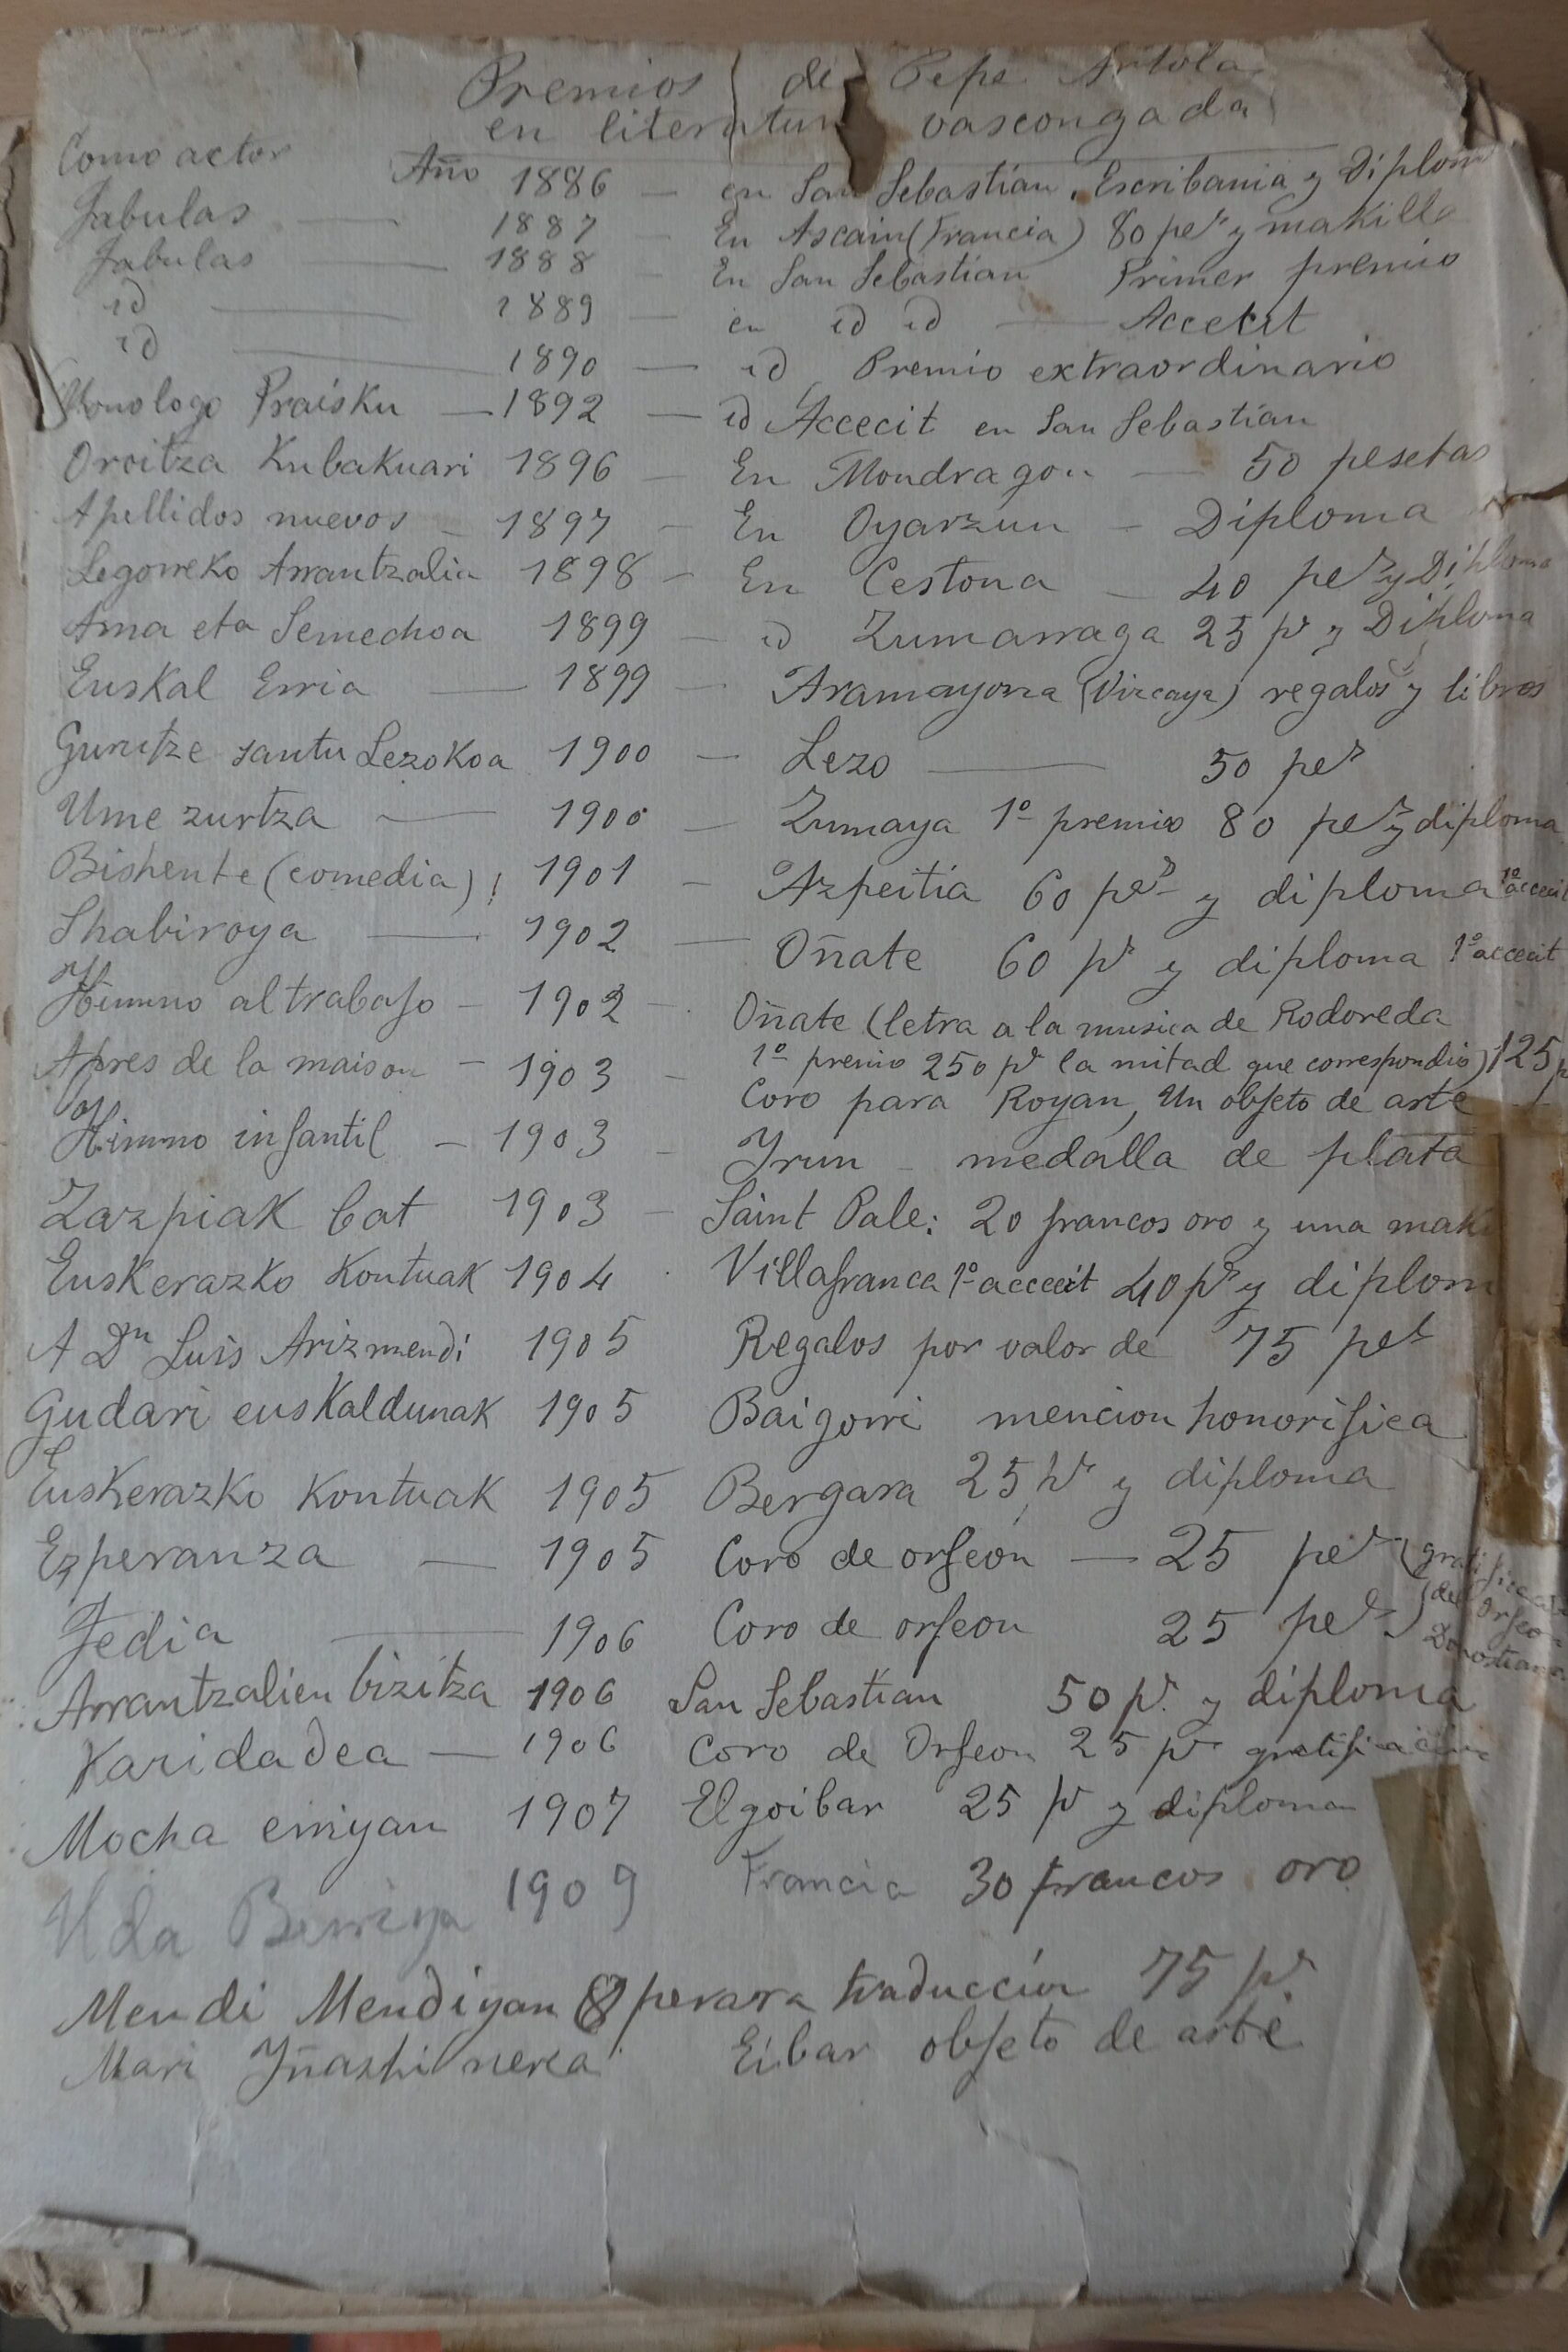 Premios de Pepe Artola
en literatura vascongada
Como actor Año 1886 — en San Sebastian. Escribania y Diplom
Fabulas — 1887 — En Ascain (Francia) 80 pes y makilla
Fabulas — 1888 — En San Sebastian Primer premio
id — 1889 — en id id — Accecit
id — 1890 — id Premio extraordinario
Monologo Praisku — 1892 — id Accecit en San Sebastian
Oroitza Kubakuari 1896 — En Mondragon — 50 pesetas
Apellidos nuevos — 1897 — En Oyarzun — Diploma
Legorreko Arrantzalia 1898 — En Cestona — 40 pes y Diploma
Ama eta Semechoa 1899 — id Zumarraga 25 ps y Diploma
Euskal Erria — 1899 — Aramayona (Vizcaya) regalos y libros
Gurutze santu Lezokoa 1900 — Lezo — 50 pes
Ume zurtza — 1900 — Zumaya 1º premio 80 pes y diploma
Bishente (comedia) 1901 — Azpeitia 60 pes y diploma 1º accecit
Shabiroya — 1902 — Oñate 60 ps y diploma 1º accecit
Himno al trabajo — 1902 — Oñate (letra a la musica de Rodoreda
1º premio 250 ps la mitad que correspondio) 125 p
Apres de la maison — 1903 — Coro para Royan, Un objeto de arte
Himno infantil — 1903 — Yrun — medalla de plata
Zazpiak bat 1903 — Saint Pale: 20 francos oro y una mak
Euskerazko Kontuak 1904 . Villafranca 1º accecit 40 ps y diplom
A Dn Luis Arizmendi 1905 Regalos por valor de 75 pes
Gudari euskaldunak 1905 Baigorri mencion honorifica
Euskerazko Kontuak 1905 Bergara 25 ps y diploma
Ezperanza — 1905 Coro de orfeon — 25 pes (gratificacio
Fedia — 1906 Coro de orfeon 25 pes) (del Orfeon
Donostiarra
Arrantzalien bizitza 1906 San Sebastian 50 ps. y diploma
Karidadea — 1906 Coro de Orfeon 25 ps gratificacion
Mocha erriyan 1907 Elgoibar 25 ps y diploma
Uda Berriya 1909 Francia 30 francos oro
Mendi Mendiyan Opera traduccion 75 ps.
Mari Yñashi nerea Eibar objeto de arte